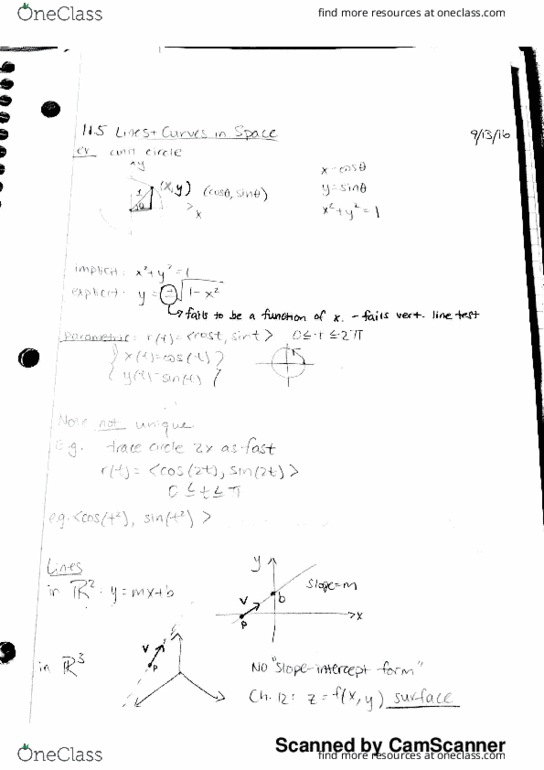 OneClass
find more resources at oneclass.com
11.5 Lines + Curves in Space
9/13/16
ex unit circle
x=cosθ
y
(x,y) (cosθ, sinθ)
y=sinθ
1
θ
x
x²+y²=1
implicit: x²+y²=1
explicit: y=±√1-x²
fails to be a function of x. - fails vert. line test
parametric: r(t)=<cost, sint> 0≤t≤2π
x(t)=cos(t)
y(t)=sin(t)
Note not unique
e.g. trace circle 2x as fast
r(t)=<cos(2t), sin(2t)>
0≤t≤π
e.g. <cos(t²), sin(t²)>
Lines
y
in R²: y=mx+b
slope=m
v
b
P
x
in R³
v
P
NO "slope-intercept form"
Ch. 12: z=f(x,y) surface
Scanned by CamScanner
OneClass
find more resources at oneclass.com